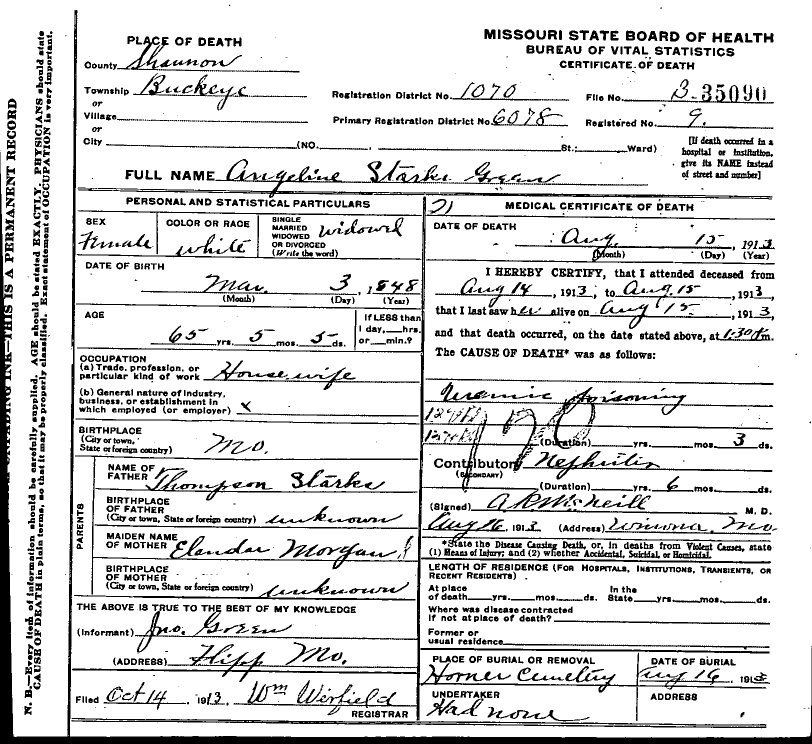 MISSOURI STATE BOARD OF HEALTH
BUREAU OF VITAL STATISTICS
CERTIFICATE OF DEATH
PLACE OF DEATH
County Shannon
Township Buckeye
or
Village
or
City (NO. , St.; Ward)
Registration District No. 1070 File No. 3-35090
Primary Registration District No. 6078 Registered No. 9.
[If death occurred in a
hospital or institution,
give its NAME instead
of street and number]
FULL NAME Angeline Starks Green
PERSONAL AND STATISTICAL PARTICULARS
SEX
Female
COLOR OR RACE
white
SINGLE
MARRIED
WIDOWED
OR DIVORCED
(Write the word)
widowed
DATE OF BIRTH
Mar. 3, 1848
(Month) (Day) (Year)
AGE
65 yrs. 5 mos. 5 ds.
If LESS than
1 day, hrs.
or min.?
OCCUPATION
(a) Trade, profession, or
particular kind of work Housewife
(b) General nature of industry,
business, or establishment in
which employed (or employer) x
BIRTHPLACE
(City or town,
State or foreign country) Mo.
PARENTS
NAME OF
FATHER Thompson Starks
BIRTHPLACE
OF FATHER
(City or town, State or foreign country) unknown
MAIDEN NAME
OF MOTHER Elandar Morgan
BIRTHPLACE
OF MOTHER
(City or town, State or foreign country) unknown
THE ABOVE IS TRUE TO THE BEST OF MY KNOWLEDGE
(Informant) Jno. Green
(ADDRESS) Flipp Mo.
Filed Oct 14, 1913 Wm Winfield
REGISTRAR
21
MEDICAL CERTIFICATE OF DEATH
DATE OF DEATH
Aug. 15, 1913
(Month) (Day) (Year)
I HEREBY CERTIFY, that I attended deceased from
Aug 14, 1913, to Aug. 15, 1913,
that I last saw her alive on Aug 15, 1913,
and that death occurred, on the date stated above, at 1:30 m.
The CAUSE OF DEATH* was as follows:
Uremic poisoning
120
(Duration) yrs. mos. 3 ds.
Contributory Nephritis
(SECONDARY)
(Duration) yrs. 6 mos. ds.
(Signed) A R McNeill M. D.
Aug 26, 1913 (Address) Winona, Mo
*State the Disease Causing Death, or, in deaths from Violent Causes, state
(1) Means of Injury; and (2) whether Accidental, Suicidal, or Homicidal.
LENGTH OF RESIDENCE (FOR HOSPITALS, INSTITUTIONS, TRANSIENTS, OR
RECENT RESIDENTS)
At place
of death yrs. mos. ds.
In the
State yrs. mos. ds.
Where was disease contracted
if not at place of death?
Former or
usual residence
PLACE OF BURIAL OR REMOVAL
Horner Cemetery
DATE OF BURIAL
Aug 16, 1913
UNDERTAKER
Had none
ADDRESS
INK—THIS IS A PERMANENT RECORD
N. B.—Every item of information should be carefully supplied. AGE should be stated EXACTLY. PHYSICIANS should state
CAUSE OF DEATH in plain terms, so that it may be properly classified. Exact statement of OCCUPATION is very important.